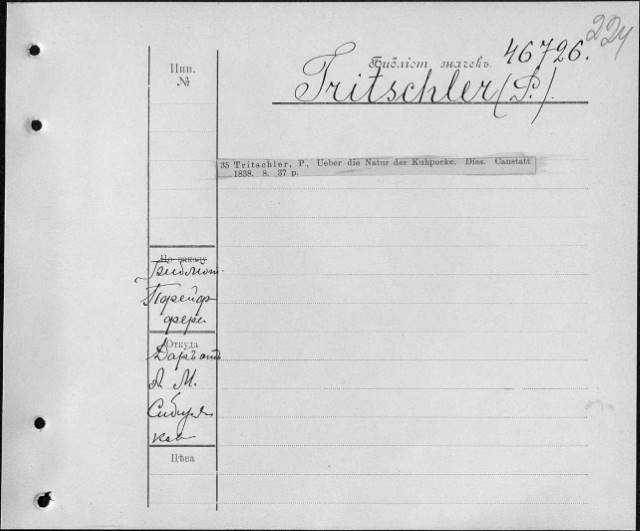 224
46726.
Библіот. значекъ.
Tritschler (P.)
Инв.
№
35 Tritschler, P., Ueber die Natur der Kuhpocke. Diss. Canstatt
1838. 8. 37 p.
По заказу
Библіот.
Пфейф
фера
Откуда
Даръ отъ
А. М.
Сибиря
кова
Цѣна